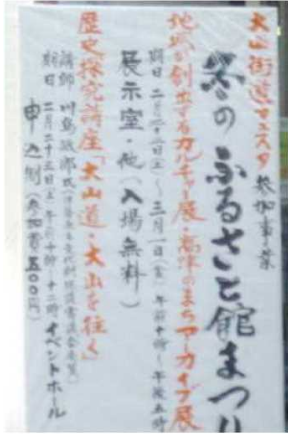 大山街道フェスタ 参加事業
冬のふるさと館まつり
地域が創出するカルチャー展・高津のまちアーカイブ展
期日 二月二十三日(土)〜三月一日(金) 午前十時〜午後五時
展示室・他(入場無料)
歴史探究講座「大山道・大山を往く」
講師 川島敏郎氏
期日 二月二十三日(土)午前十時〜十二時 イベントホール
申込制(参加費五〇〇円)